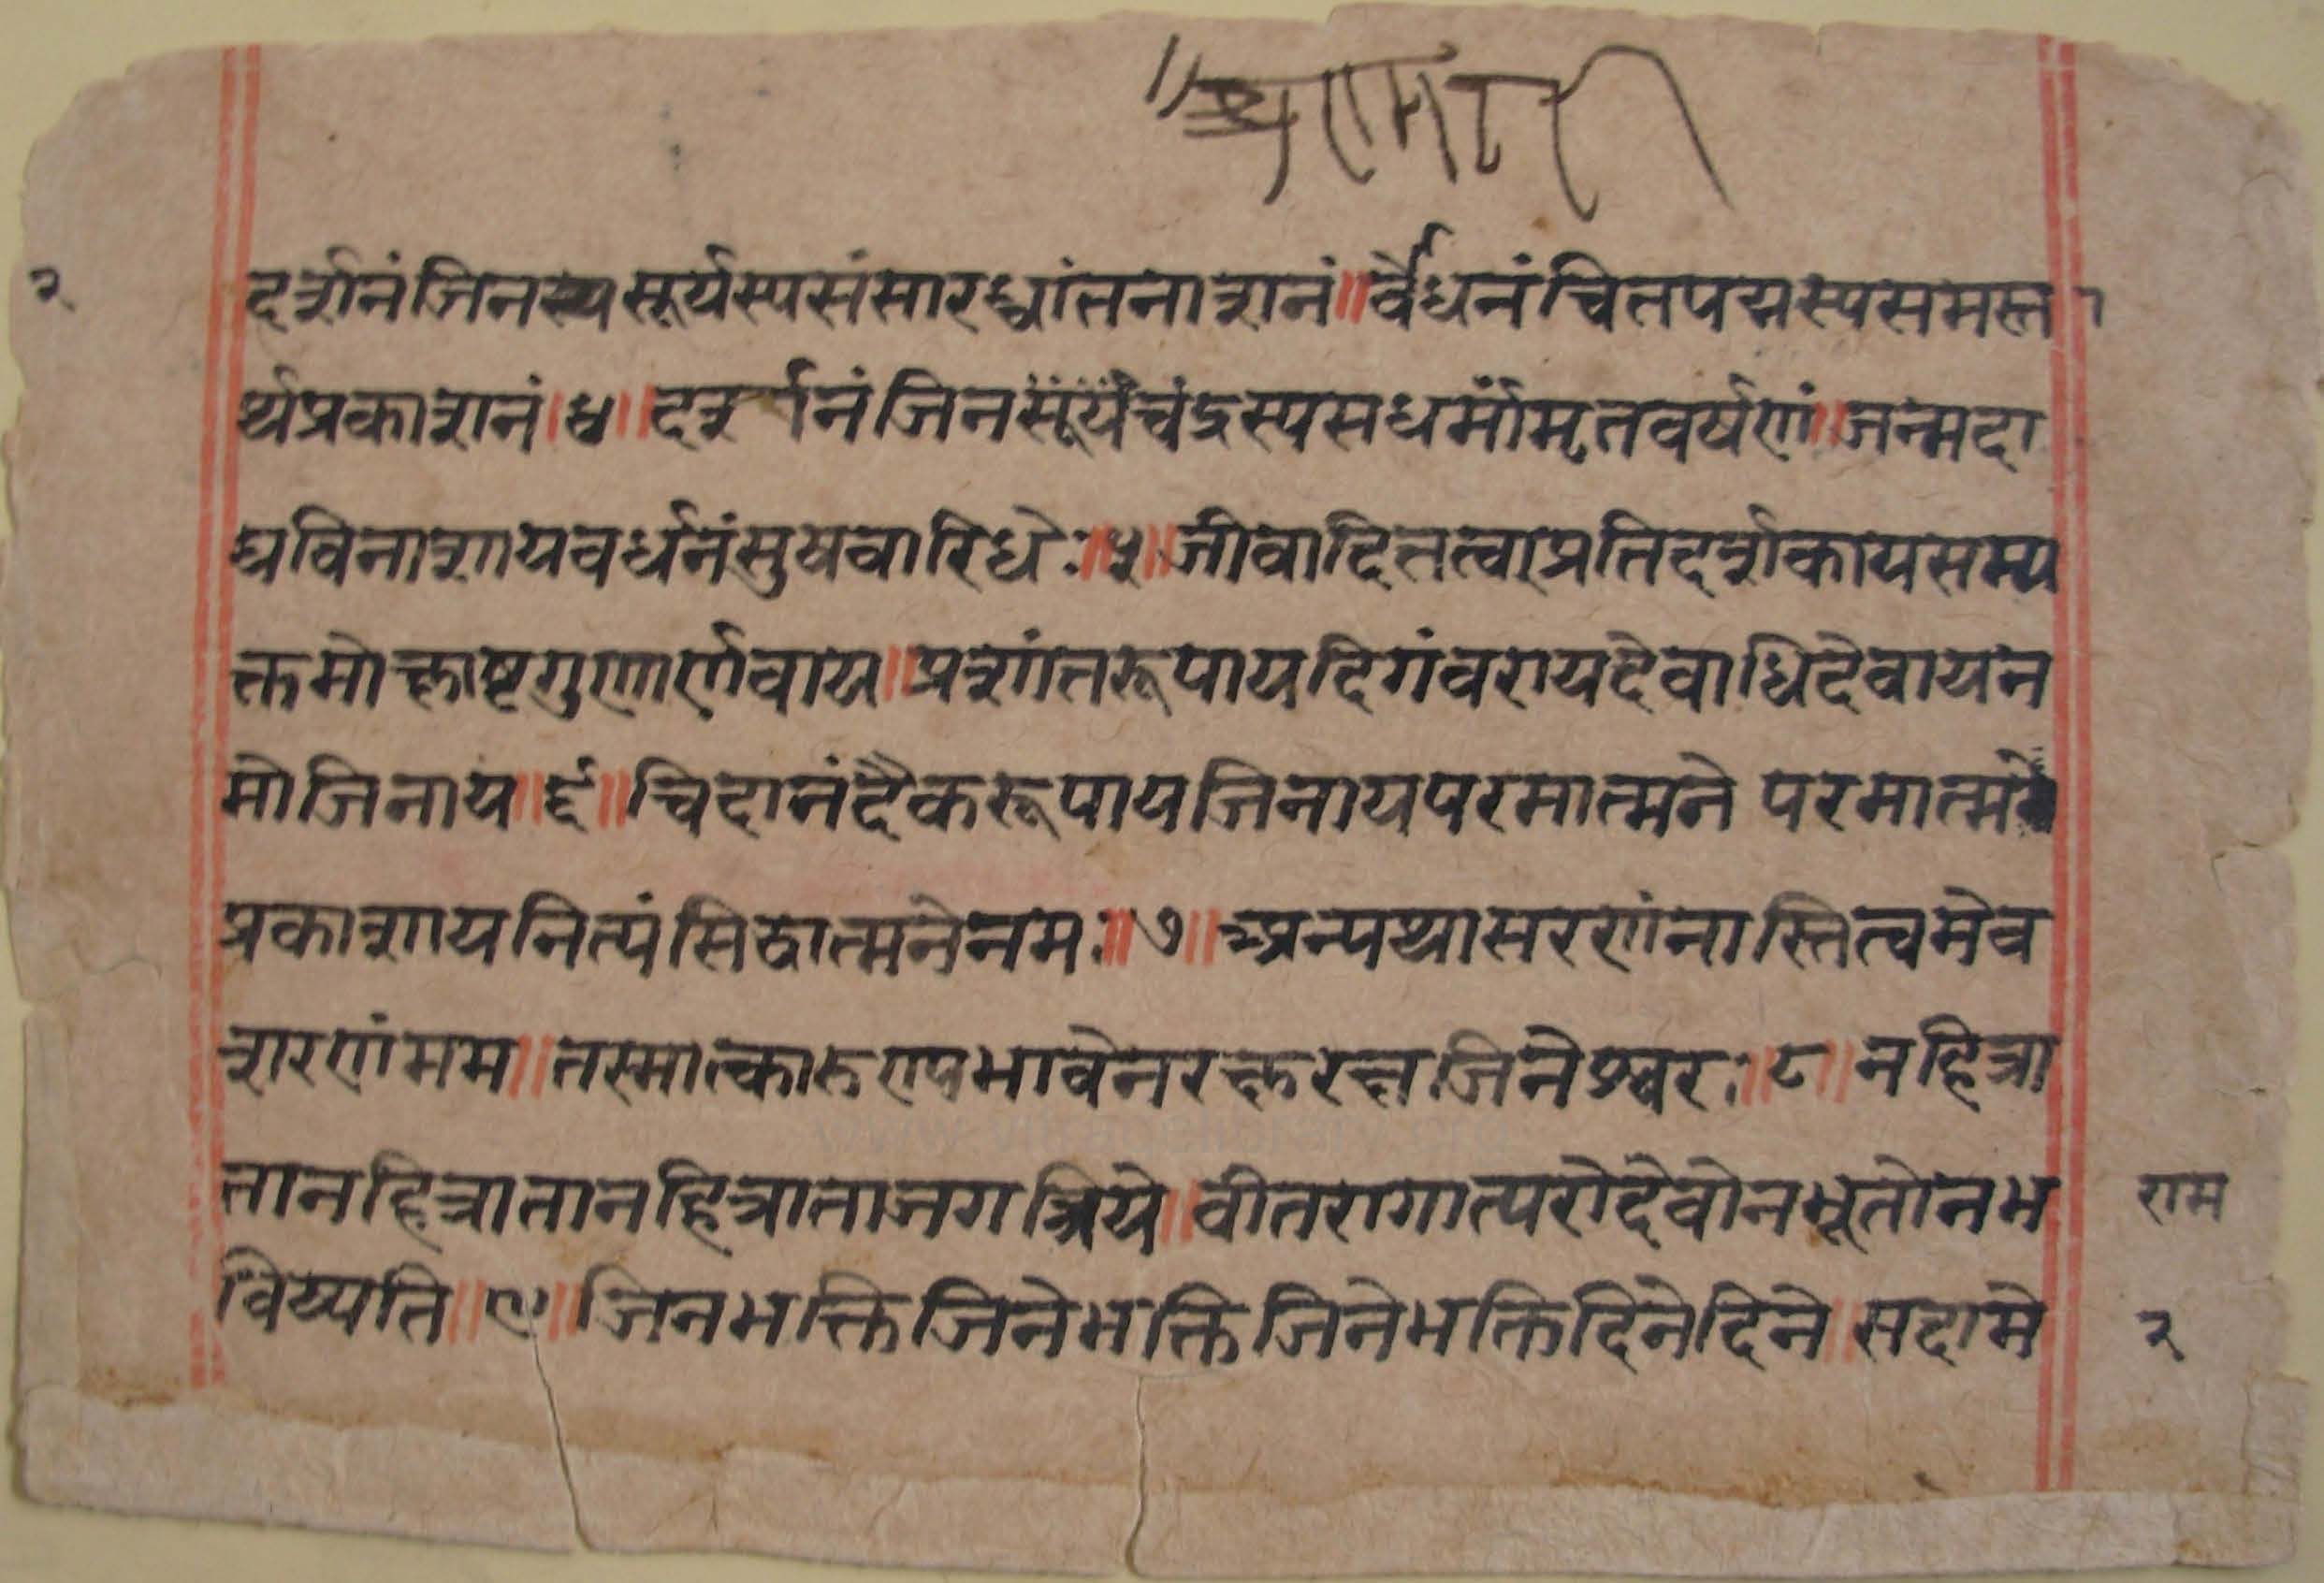 २
दर्शनंजिनस्यसूर्यस्यसंसारध्वांतनाशनं॥वौधनंचितपद्मस्यसमस्ता
र्थप्रकाशनं॥४॥दर्शनंजिनसूर्यचंद्रस्यसधर्मामृतवर्षणं॥जन्मदा
घविनाशायवर्धनंसुषवारिधेः॥५॥जीवादितत्वाप्रतिदर्शकायसम्य
क्तमोक्ष्ताष्टगुणार्णवाय॥प्रशांतरूपायदिगंवरायदेवाधिदेवायन
मोजिनाय॥६॥चिदानंदैकरूपायजिनायपरमात्मने परमात्मने
प्रकाशायनित्यंसिद्धात्मनेनमः॥७॥अन्यथासरणंनास्तित्वमेव
शरणंमम॥तस्मात्कारुण्यभावेनरक्षरक्षजिनेश्वरः॥८॥नहित्रा
तानहित्रातानहित्राताजगत्रिये॥वीतरागात्परोदेवोनभूतोनभ
विष्यति॥९॥जिनभक्तिजिनेभक्तिजिनेभक्तिदिनेदिने॥सदामे
राम
२